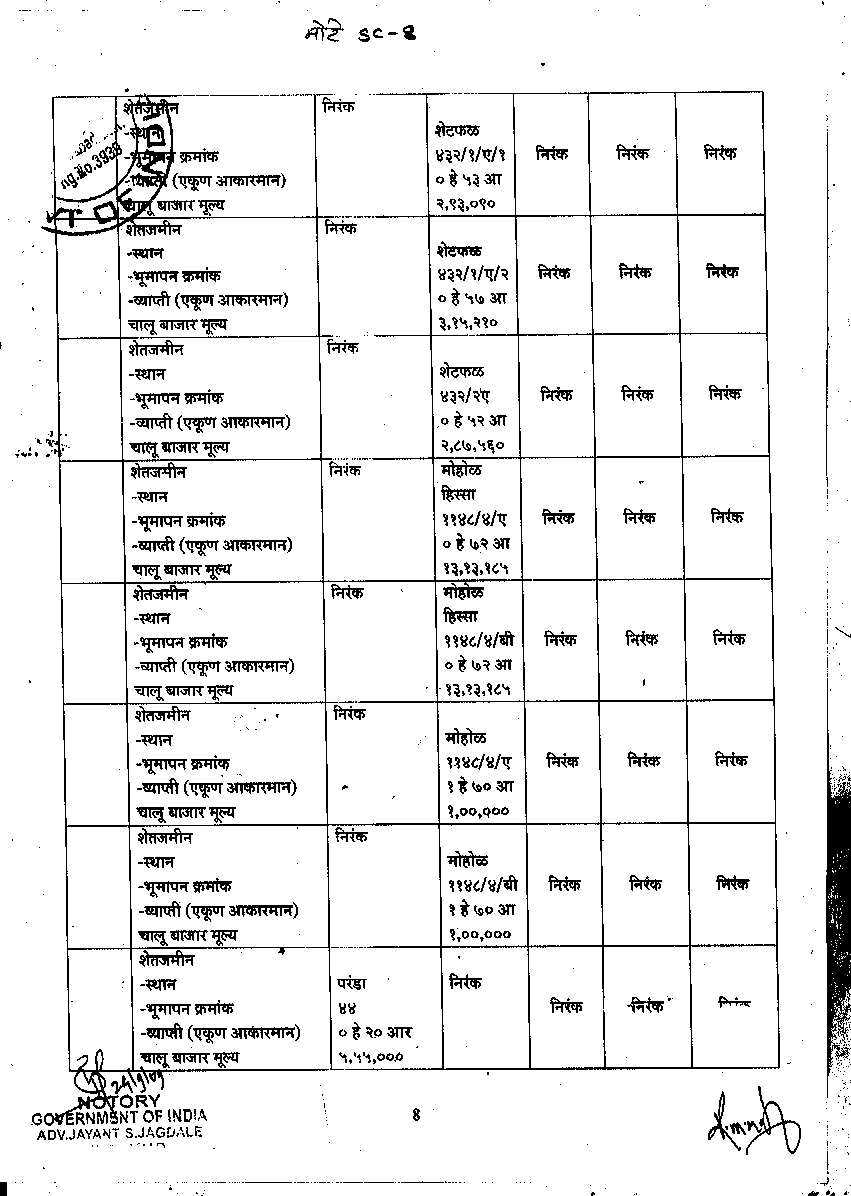 मोटे SC-8
शेतजमीन निरंक
-स्थान शेटफळ
-भूमापन क्रमांक ४३२/१/ए/१ निरंक निरंक निरंक
-व्याप्ती (एकूण आकारमान) ० हे ५३ आ
चालू बाजार मूल्य २,९३,०९०
शेतजमीन निरंक
-स्थान शेटफळ
-भूमापन क्रमांक ४३२/१/ए/२ निरंक निरंक निरंक
-व्याप्ती (एकूण आकारमान) ० हे ५७ आ
चालू बाजार मूल्य ३,१५,२१०
शेतजमीन निरंक
-स्थान शेटफळ
-भूमापन क्रमांक ४३२/२ए निरंक निरंक निरंक
-व्याप्ती (एकूण आकारमान) ० हे ५२ आ
चालू बाजार मूल्य २,८७,५६०
शेतजमीन निरंक मोहोळ
-स्थान हिस्सा
-भूमापन क्रमांक ११४८/४/ए निरंक निरंक निरंक
-व्याप्ती (एकूण आकारमान) ० हे ७२ आ
चालू बाजार मूल्य १३,१३,१८५
शेतजमीन निरंक मोहोळ
-स्थान हिस्सा
-भूमापन क्रमांक ११४८/४/बी निरंक निरंक निरंक
-व्याप्ती (एकूण आकारमान) ० हे ७२ आ
चालू बाजार मूल्य १३,१३,१८५
शेतजमीन निरंक
-स्थान मोहोळ
-भूमापन क्रमांक ११४८/४/ए निरंक निरंक निरंक
-व्याप्ती (एकूण आकारमान) १ हे ७० आ
चालू बाजार मूल्य १,००,०००
शेतजमीन निरंक
-स्थान मोहोळ
-भूमापन क्रमांक ११४८/४/बी निरंक निरंक निरंक
-व्याप्ती (एकूण आकारमान) १ हे ७० आ
चालू बाजार मूल्य १,००,०००
शेतजमीन
-स्थान परंडा निरंक
-भूमापन क्रमांक ४४ निरंक निरंक निरंक
-व्याप्ती (एकूण आकारमान) ० हे २० आर
चालू बाजार मूल्य ५,५५,०००
NOTORY
GOVERNMENT OF INDIA
ADV.JAYANT S.JAGDALE
8